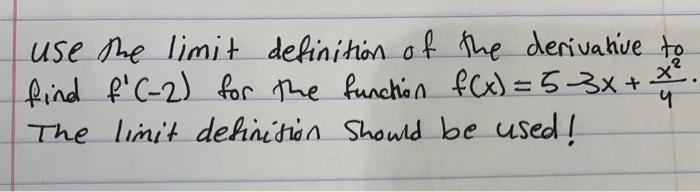 use the limit definition of the derivative to
find f'(-2) for the function f(x) = 5-3x + x²/4.
The limit definition should be used!